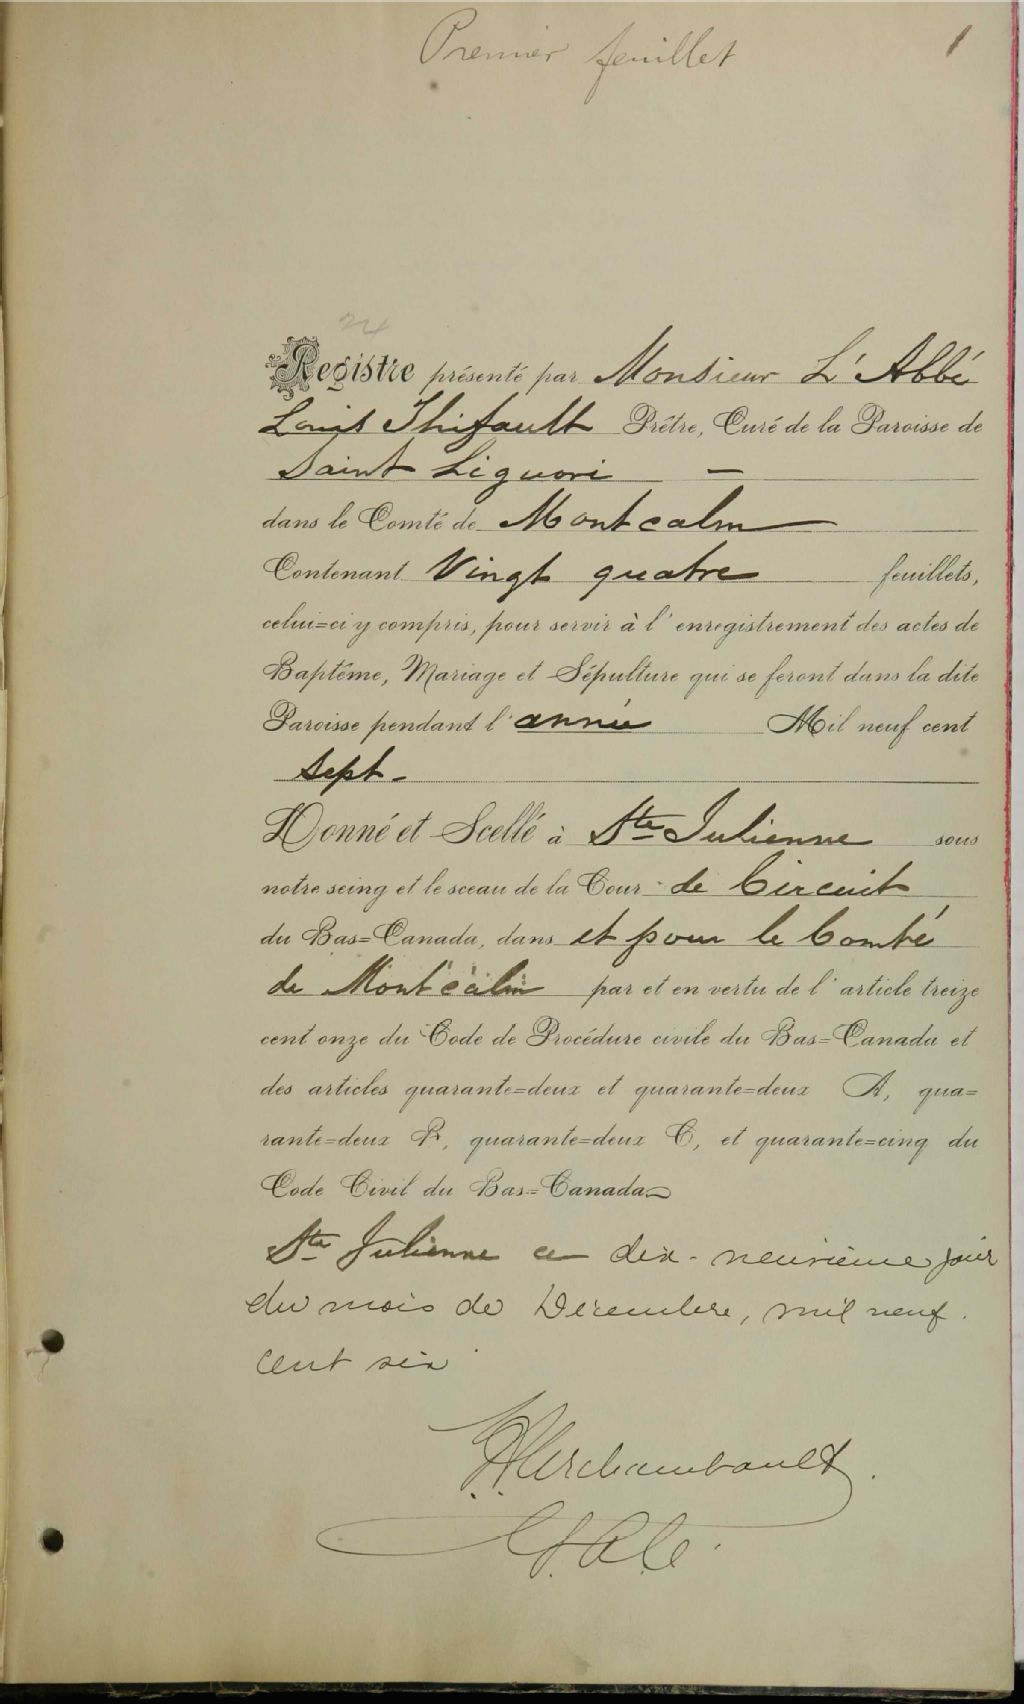 Premier feuillet 1
24
Registre présenté par Monsieur L'Abbé
Louis Thifault Prêtre, Curé de la Paroisse de
Saint Liguori —
dans le Comté de Montcalm
Contenant Vingt quatre feuillets,
celui=ci y compris, pour servir à l'enregistrement des actes de
Baptême, Mariage et Sépulture qui se feront dans la dite
Paroisse pendant l'année Mil neuf cent
sept-
Donné et Scellé à Ste Julienne sous
notre seing et le sceau de la Cour de Circuit
du Bas=Canada, dans et pour le Comté
de Montcalm par et en vertu de l'article treize
cent onze du Code de Procédure civile du Bas=Canada et
des articles quarante=deux et quarante=deux A, qua=
rante=deux B, quarante=deux C, et quarante=cinq du
Code Civil du Bas=Canada
Ste Julienne ce dix-neuvième jour
du mois de Décembre, mil neuf
cent six
Archambault